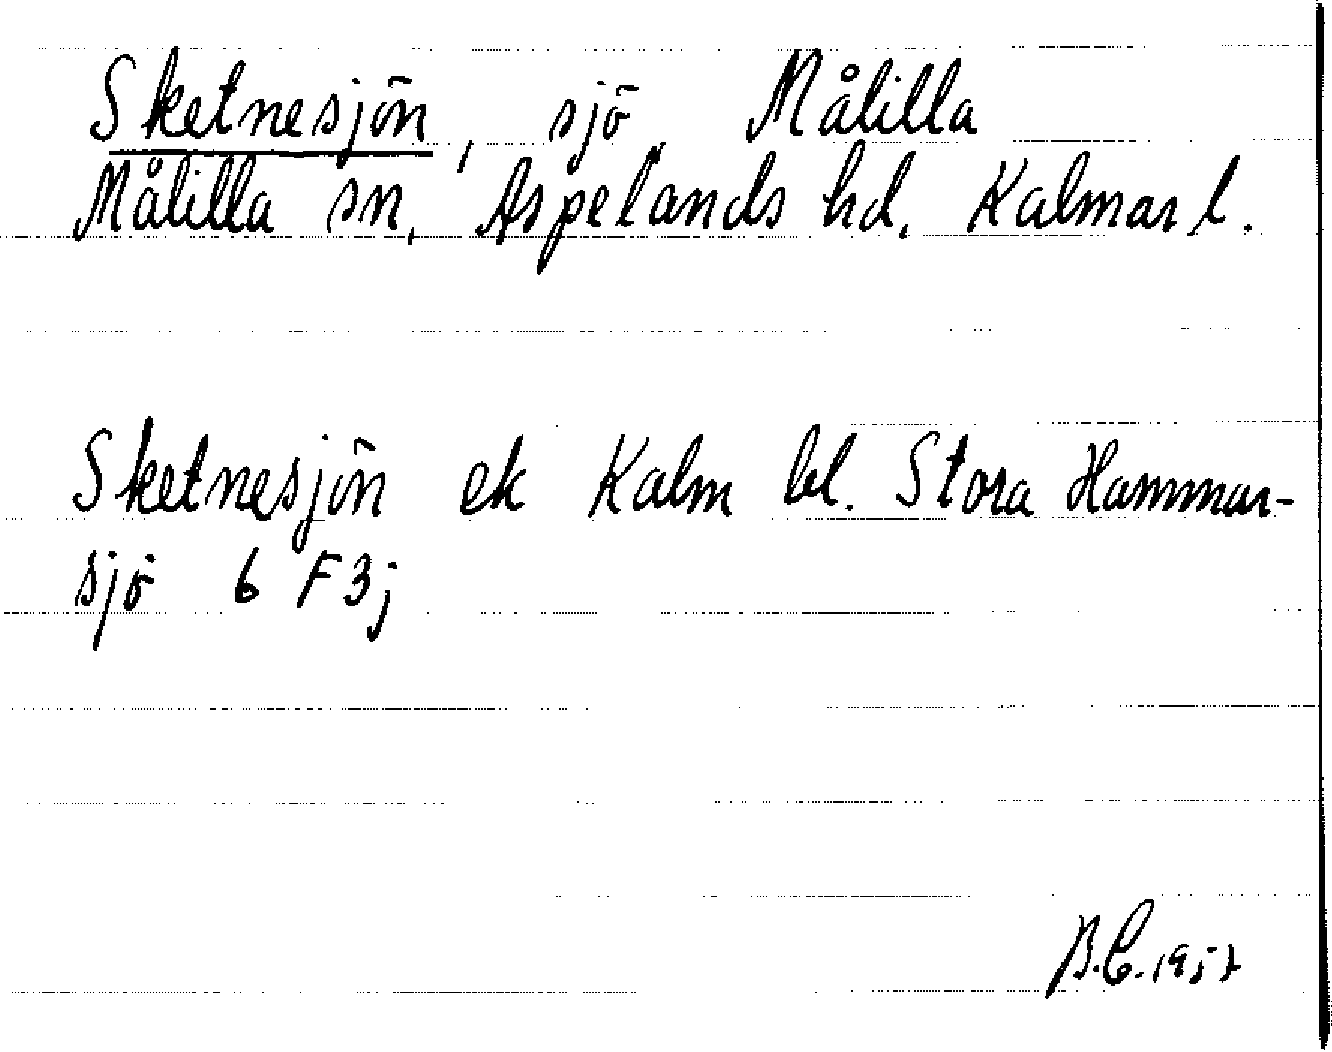 Sketnesjön, sjö Målilla
Målilla sn, Aspelands hd, Kalmar l.
Sketnesjön ek Kalm bl. Stora Hammar-
sjö 6 F 3j
B.C.